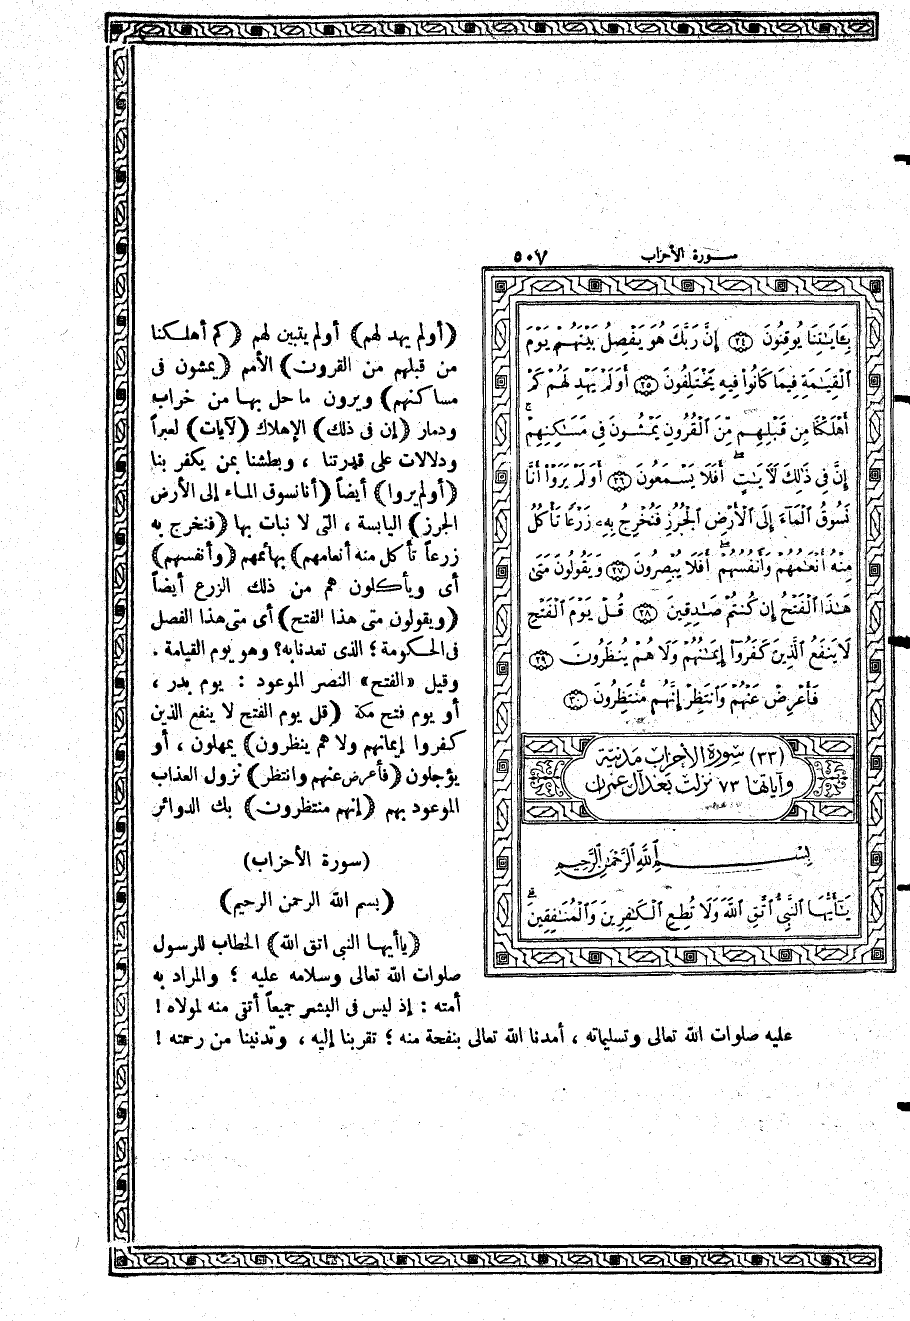 سورة الأحزاب ٥٠٧
بِـَٔايَـٰتِنَا يُوقِنُونَ ٢٤ إِنَّ رَبَّكَ هُوَ يَفْصِلُ بَيْنَهُمْ يَوْمَ
ٱلْقِيَـٰمَةِ فِيمَا كَانُوا۟ فِيهِ يَخْتَلِفُونَ ٢٥ أَوَلَمْ يَهْدِ لَهُمْ كَمْ
أَهْلَكْنَا مِن قَبْلِهِم مِّنَ ٱلْقُرُونِ يَمْشُونَ فِى مَسَـٰكِنِهِمْ ۚ
إِنَّ فِى ذَٰلِكَ لَـَٔايَـٰتٍ ۖ أَفَلَا يَسْمَعُونَ ٢٦ أَوَلَمْ يَرَوْا۟ أَنَّا
نَسُوقُ ٱلْمَآءَ إِلَى ٱلْأَرْضِ ٱلْجُرُزِ فَنُخْرِجُ بِهِۦ زَرْعًا تَأْكُلُ
مِنْهُ أَنْعَـٰمُهُمْ وَأَنفُسُهُمْ ۖ أَفَلَا يُبْصِرُونَ ٢٧ وَيَقُولُونَ مَتَىٰ
هَـٰذَا ٱلْفَتْحُ إِن كُنتُمْ صَـٰدِقِينَ ٢٨ قُلْ يَوْمَ ٱلْفَتْحِ
لَا يَنفَعُ ٱلَّذِينَ كَفَرُوٓا۟ إِيمَـٰنُهُمْ وَلَا هُمْ يُنظَرُونَ ٢٩
فَأَعْرِضْ عَنْهُمْ وَٱنتَظِرْ إِنَّهُم مُّنتَظِرُونَ ٣٠
(٣٣) سورة الأحزاب مدنية
وآياتها ٧٣ نزلت بعد آل عمران
بِسْمِ ٱللَّهِ ٱلرَّحْمَـٰنِ ٱلرَّحِيمِ
يَـٰٓأَيُّهَا ٱلنَّبِىُّ ٱتَّقِ ٱللَّهَ وَلَا تُطِعِ ٱلْكَـٰفِرِينَ وَٱلْمُنَـٰفِقِينَ ۗ
(أولم يهد لهم) أولم يتبين لهم (كم أهلكنا
من قبلهم من القرون) الأمم (يمشون فى
مساكنهم) ويرون ما حل بها من خراب
ودمار (إن فى ذلك) الإهلاك (لآيات) لعبراً
ودلالات على قدرتنا ، وبطشنا بمن يكفر بنا
(أولم يروا) أيضاً (أنا نسوق الماء إلى الأرض
الجرز) اليابسة ، التى لا نبات بها (فنخرج به
زرعاً تأكل منه أنعامهم) بهائمهم (وأنفسهم)
أى ويأكلون هم من ذلك الزرع أيضاً
(ويقولون متى هذا الفتح) أى متى هذا الفصل
فى الحكومة ؛ الذى تعدنا به؟ وهو يوم القيامة .
وقيل «الفتح» النصر الموعود : يوم بدر ،
أو يوم فتح مكة (قل يوم الفتح لا ينفع الذين
كفروا إيمانهم ولا هم ينظرون) يمهلون ، أو
يؤجلون (فأعرض عنهم وانتظر) نزول العذاب
الموعود بهم (إنهم منتظرون) بك الدوائر
(سورة الأحزاب)
(بسم الله الرحمن الرحيم)
(يا أيها النبى اتق الله) الخطاب للرسول
صلوات الله تعالى وسلامه عليه ؛ والمراد به
أمته : إذ ليس فى البشر جميعاً أتقى منه لمولاه !
عليه صلوات الله تعالى وتسليماته ، أمدنا الله تعالى بنفحة منه ؛ تقربنا إليه ، وتدنينا من رحمته !